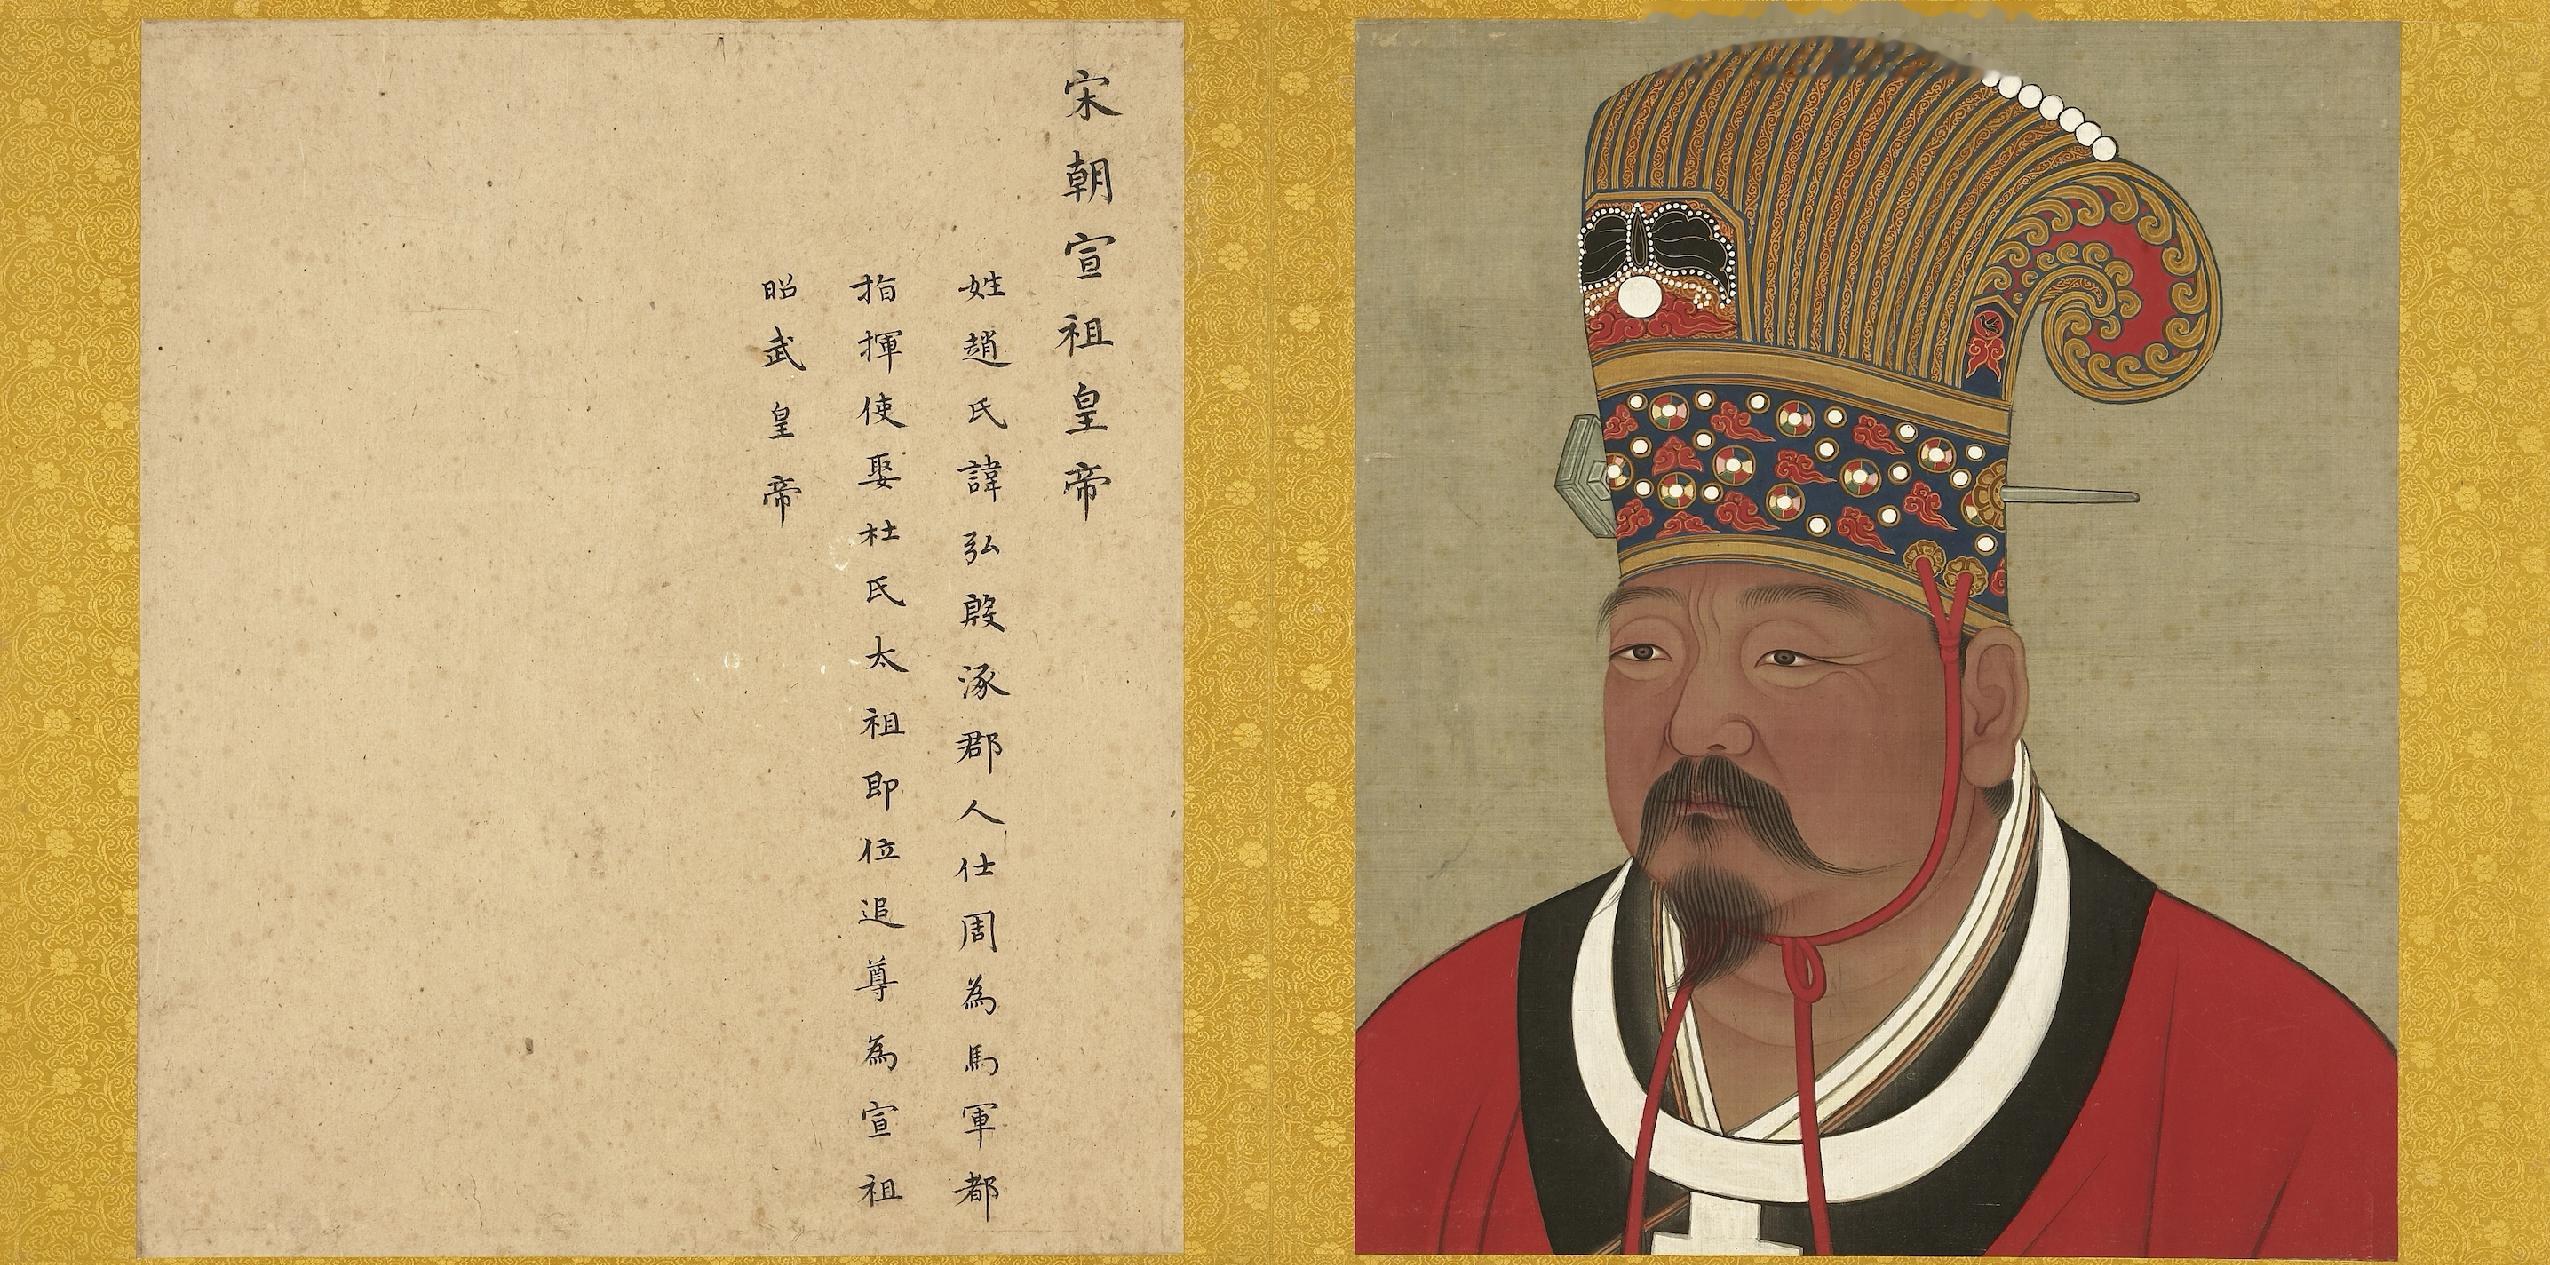 宋朝宣祖皇帝
姓趙氏諱弘殷涿郡人仕周為馬軍都
指揮使娶杜氏太祖即位追尊為宣祖
昭武皇帝